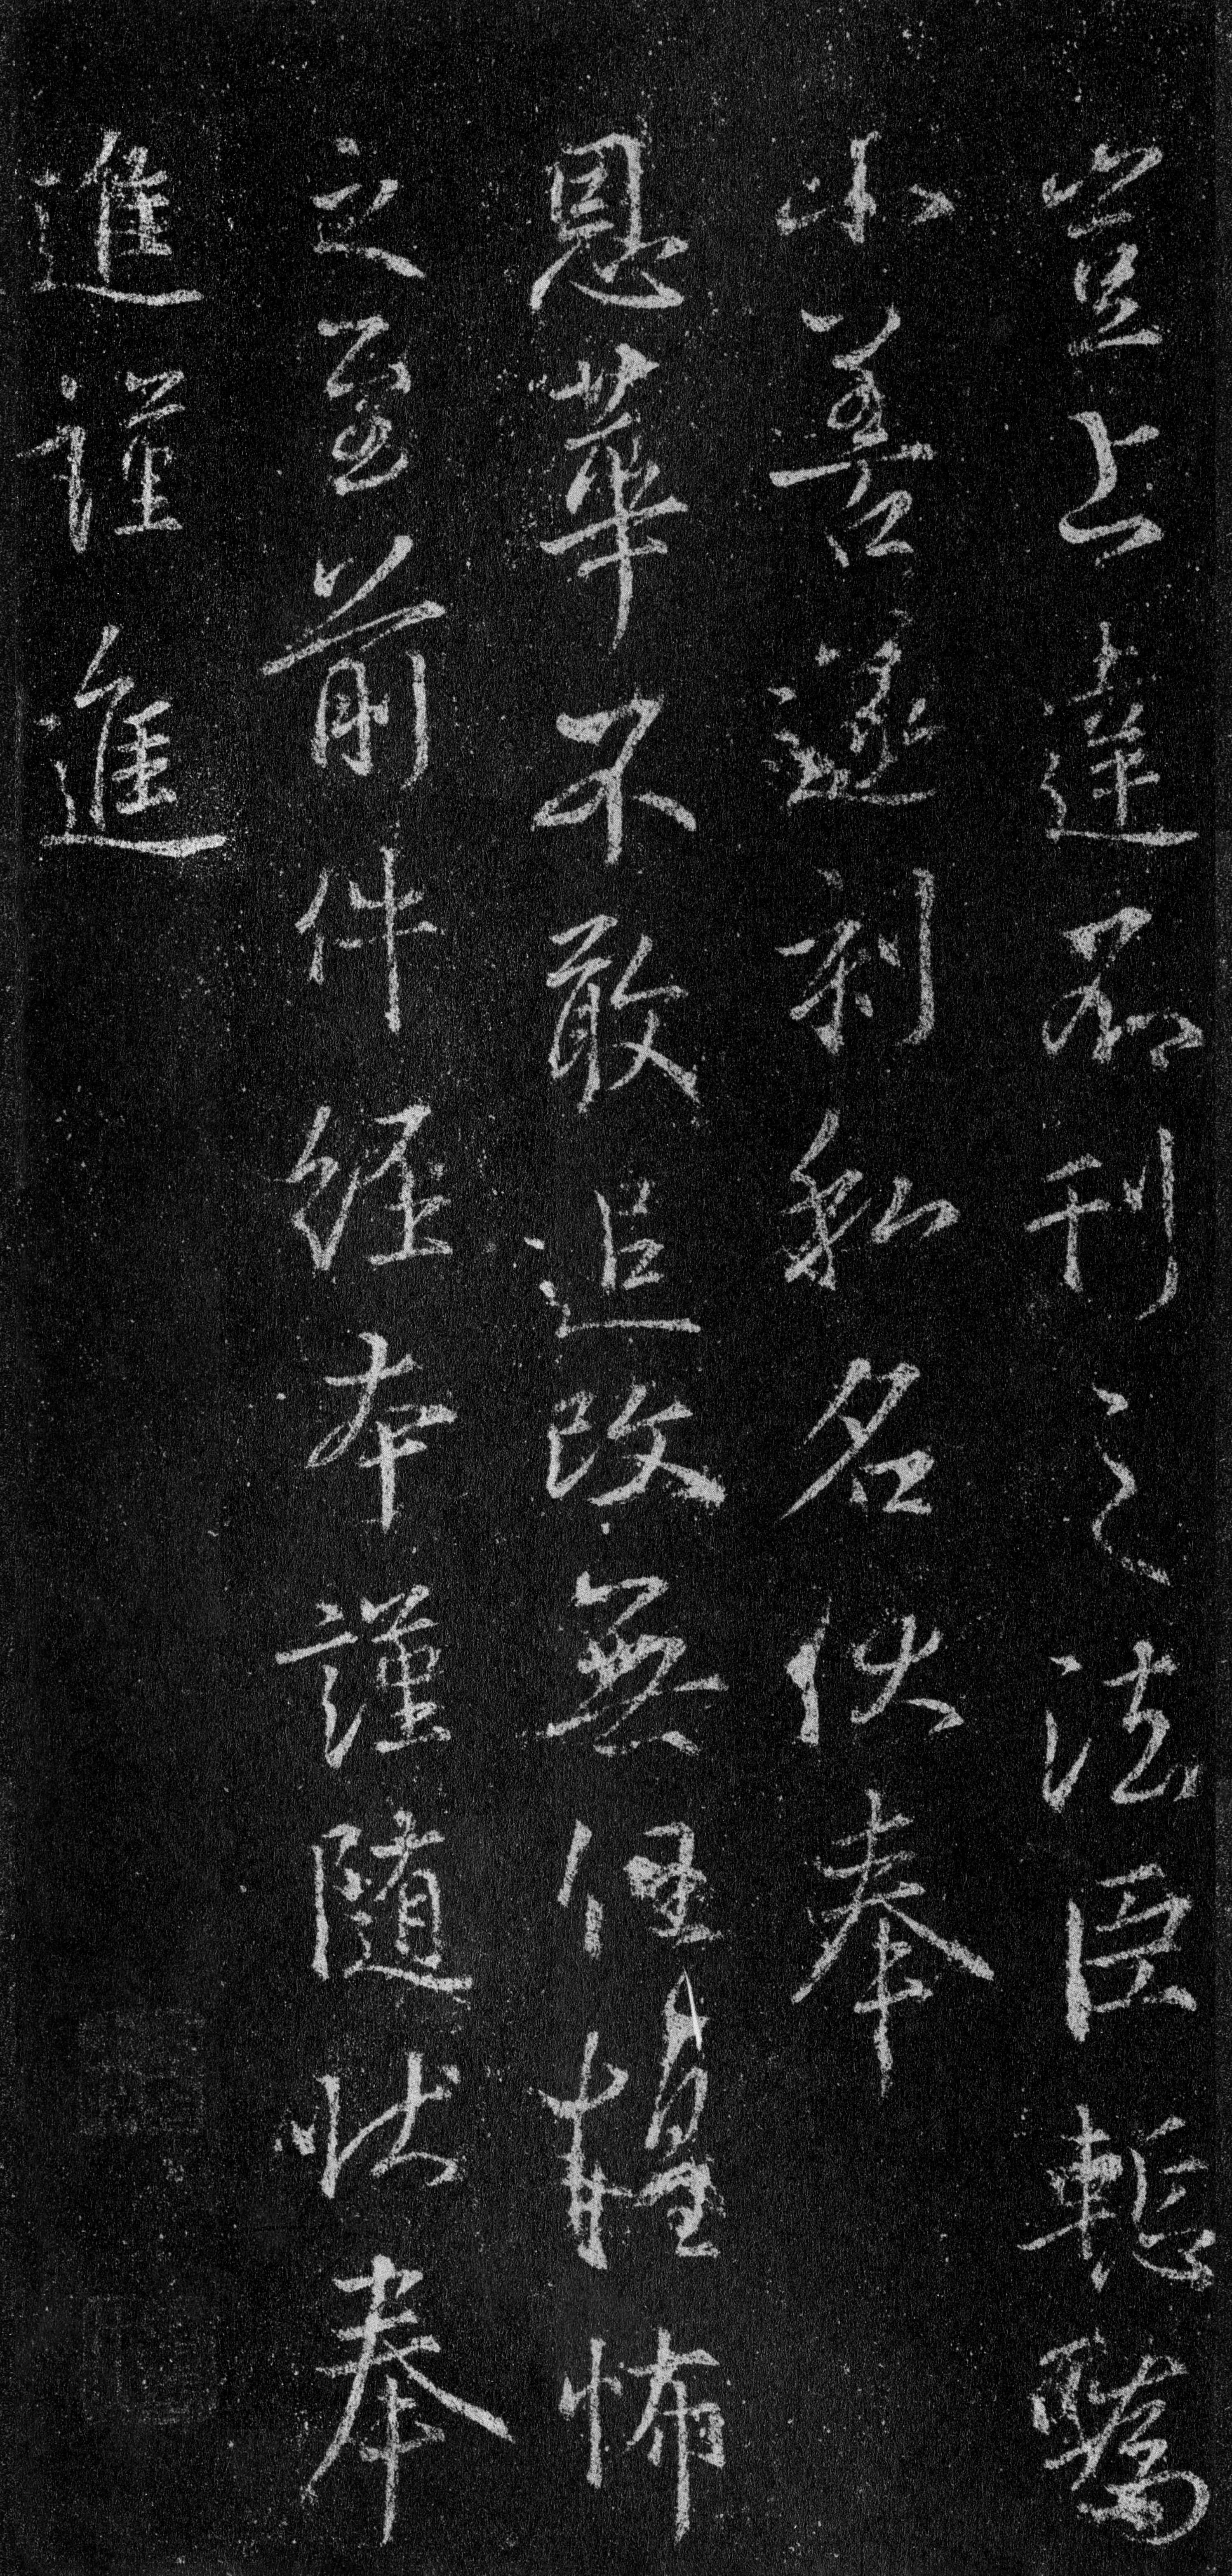 豈上達不刊之法臣輒
小善遂列私名伏奉
恩華不敢追改無任惶怖
之至前件經本謹隨狀奉
進謹進